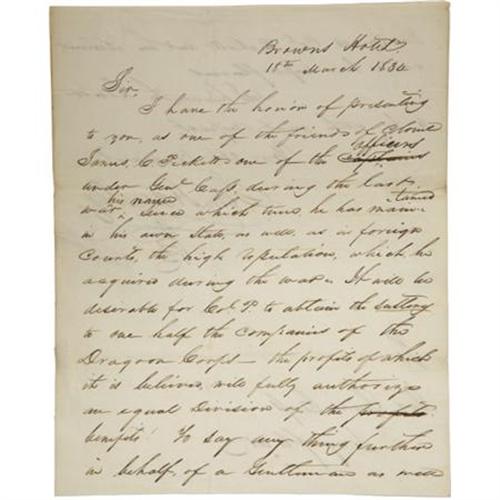 Browns Hotel
18th March 1834
Sir,
I have the honor of presenting
to you, as one of the friends of Colonel
James, C Pickett one of the officers
under Genl Cass, during the last
war his name since which time, he has maintained
in his own State, as well, as in foreign
Courts, the high reputation, which he
acquired during the war. It will be
desirable for Col. P. to obtain the sutling
to one half the companies of the
Dragoon Corps — the profits of which
it is believed, will fully authorize
an equal Division of the profits
benefits! To say any thing further
in behalf, of a Gentleman as well